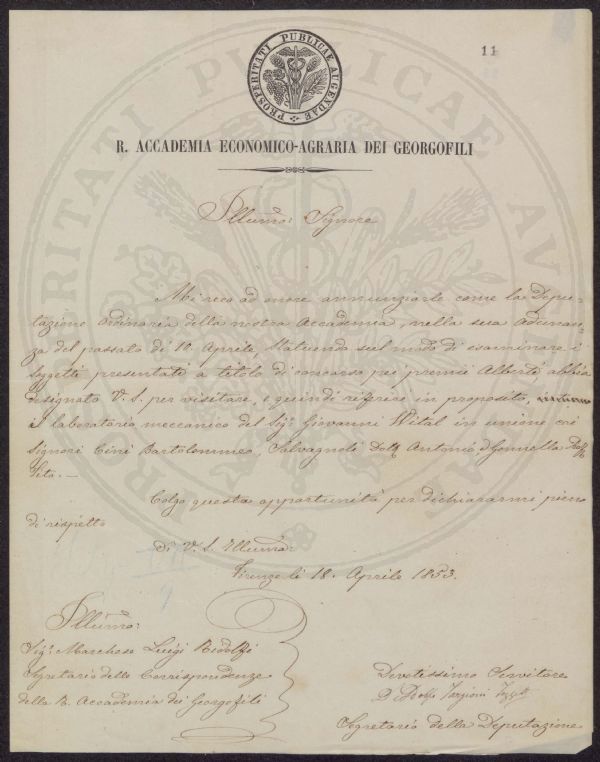 11
PROSPERITATI PUBLICAE AUGENDAE
R. ACCADEMIA ECONOMICO-AGRARIA DEI GEORGOFILI
Illumo: Signore
Mi reco ad onore annunziarle come la Depu-
tazione Ordinaria della nostra Accademia, nella sua Adunan-
za del passato dì 10 Aprile, statuendo sul modo di esaminare i
Soggetti presentati a titolo di concorso pei premi Alberti abbia
designato V. S. per visitare, e quindi riferire in proposito,
il laboratorio meccanico del Sigr. Giovanni Vital in unione coi
Signori Cini Bartolommeo, Salvagnoli Dott. Antonio, e Gonnella Prof.
Tito. —
Colgo questa opportunità per dichiararmi pieno
di rispetto
di V. S. Illuma
Firenze li 18. Aprile 1853.
Illumo:
Sigr. Marchese Luigi Ridolfi
Segretario delle Corrispondenze
della R. Accademia dei Georgofili
Devotissimo Servitore
Targioni
Segretario della Deputazione